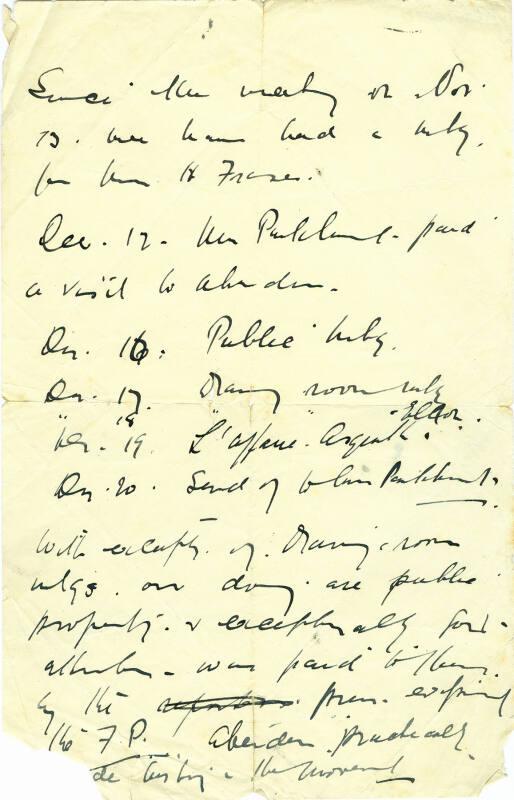 Since the meeting on Nov.
13. we have had a mtg.
for Mrs H Fraser.
Dec. 12. Mrs Pankhurst paid
a visit to Aberdeen.
Dec. 16. Public Mtg.
Dec. 17 Drawing room mtg
Dec. 19. "L'affaire" Asquith. Ellon.
Dec. 20. Send off to Mrs Pankhurst.
With except. of Drawing-room
mtgs. our doings are public
property. & exceptionally good
attention was paid to them
by the press. except
the F.P. Aberdeen practically
the movement